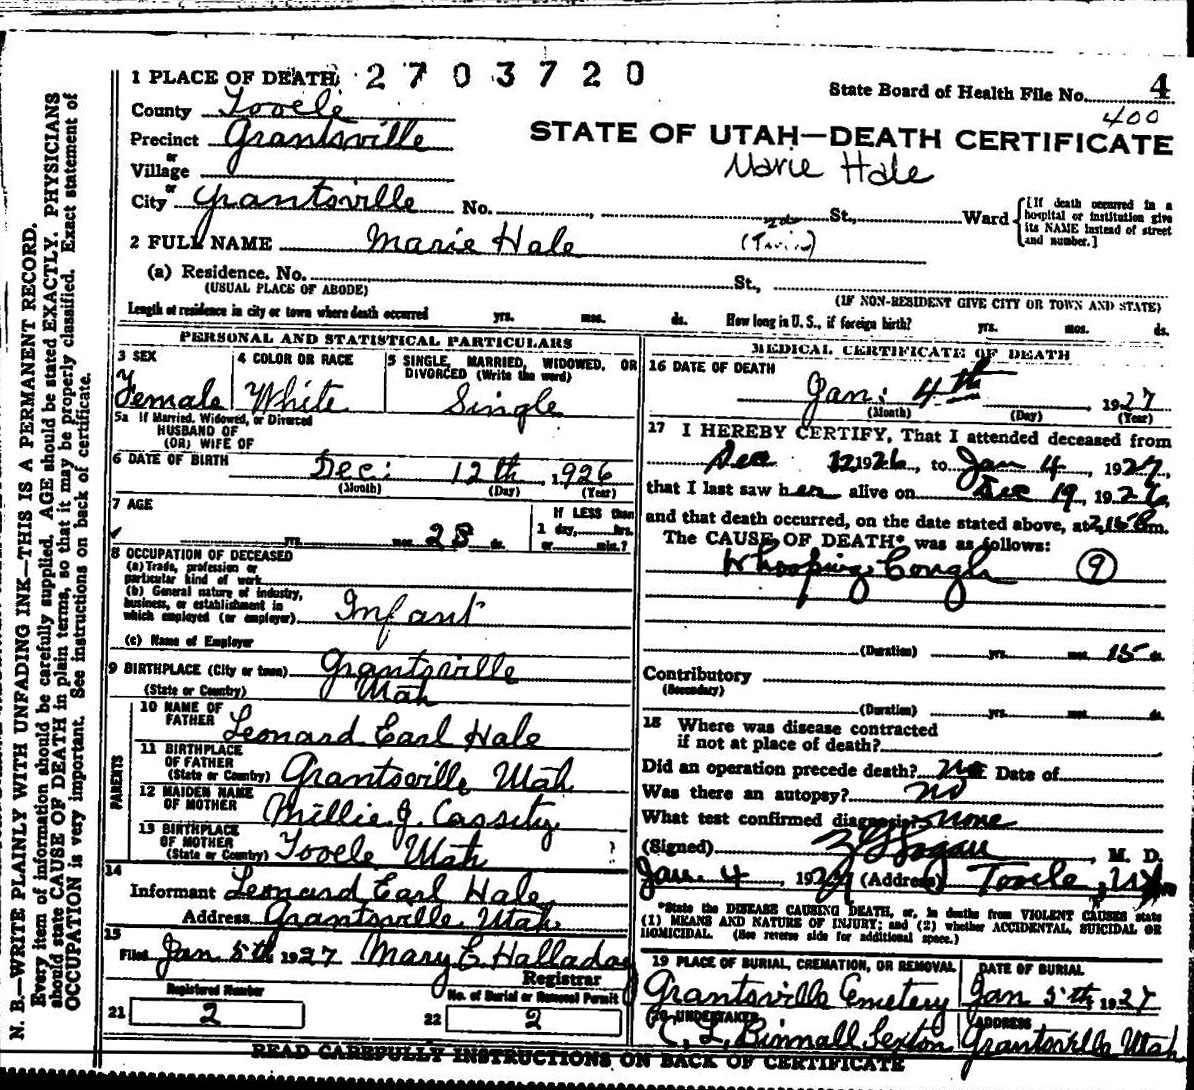 1 PLACE OF DEATH 2703720
State Board of Health File No. 4
400
County Tooele
Precinct Grantsville
or
Village
or
City Grantsville No. St., Ward
STATE OF UTAH—DEATH CERTIFICATE
Marie Hale
[If death occurred in a
hospital or institution give
its NAME instead of street
and number.]
2 FULL NAME Marie Hale
(a) Residence. No. St.,
(USUAL PLACE OF ABODE)
(IF NON-RESIDENT GIVE CITY OR TOWN AND STATE)
Length of residence in city or town where death occurred yrs. mos. ds. How long in U. S., if foreign birth? yrs. mos. ds.
PERSONAL AND STATISTICAL PARTICULARS
3 SEX
Female
4 COLOR OR RACE
White
5 SINGLE, MARRIED, WIDOWED, OR
DIVORCED (Write the word)
Single
5a If Married, Widowed, or Divorced
HUSBAND OF
(OR) WIFE OF
6 DATE OF BIRTH Dec: 12th, 1926
(Month) (Day) (Year)
7 AGE
yrs. mos. 23 ds.
IF LESS than
1 day, hrs.
or min.?
8 OCCUPATION OF DECEASED
(a) Trade, profession or
particular kind of work
(b) General nature of industry,
business, or establishment in
which employed (or employer) Infant
(c) Name of Employer
9 BIRTHPLACE (City or town) Grantsville
(State or Country) Utah
PARENTS
10 NAME OF
FATHER Leonard Earl Hale
11 BIRTHPLACE
OF FATHER
(State or Country) Grantsville Utah
12 MAIDEN NAME
OF MOTHER Millie J. Cassity
13 BIRTHPLACE
OF MOTHER
(State or Country) Tooele Utah
14
Informant Leonard Earl Hale
Address Grantsville, Utah.
15
Filed Jan 5th 1927 Mary E. Halladay
Registrar
Registered Number
21 2
No. of Burial or Removal Permit
22 2
MEDICAL CERTIFICATE OF DEATH
16 DATE OF DEATH
Jan: 4th, 1927
(Month) (Day) (Year)
17 I HEREBY CERTIFY, That I attended deceased from
Dec 12 1926, to Jan 4, 1927,
that I last saw her alive on Dec 19, 1926,
and that death occurred, on the date stated above, at m.
The CAUSE OF DEATH* was as follows:
Whooping Cough 9
(Duration) yrs. mos. 15 ds.
Contributory
(Secondary)
(Duration) yrs. mos. ds.
18 Where was disease contracted
if not at place of death?
Did an operation precede death? No Date of
Was there an autopsy? no
What test confirmed diagnosis? none
(Signed) , M. D.
Jan. 4, 1927 (Address) Tooele, Utah
*State the DISEASE CAUSING DEATH, or, in deaths from VIOLENT CAUSES state
(1) MEANS AND NATURE OF INJURY; and (2) whether ACCIDENTAL, SUICIDAL OR
HOMICIDAL. (See reverse side for additional space.)
19 PLACE OF BURIAL, CREMATION, OR REMOVAL
Grantsville Cemetery
DATE OF BURIAL
Jan 5th, 1927
20 UNDERTAKER
C. L. Sexton
ADDRESS
Grantsville Utah
READ CAREFULLY INSTRUCTIONS ON BACK OF CERTIFICATE
N. B.—WRITE PLAINLY WITH UNFADING INK—THIS IS A PERMANENT RECORD.
Every item of information should be carefully supplied. AGE should be stated EXACTLY. PHYSICIANS
should state CAUSE OF DEATH in plain terms, so that it may be properly classified. Exact statement of
OCCUPATION is very important. See instructions on back of certificate.